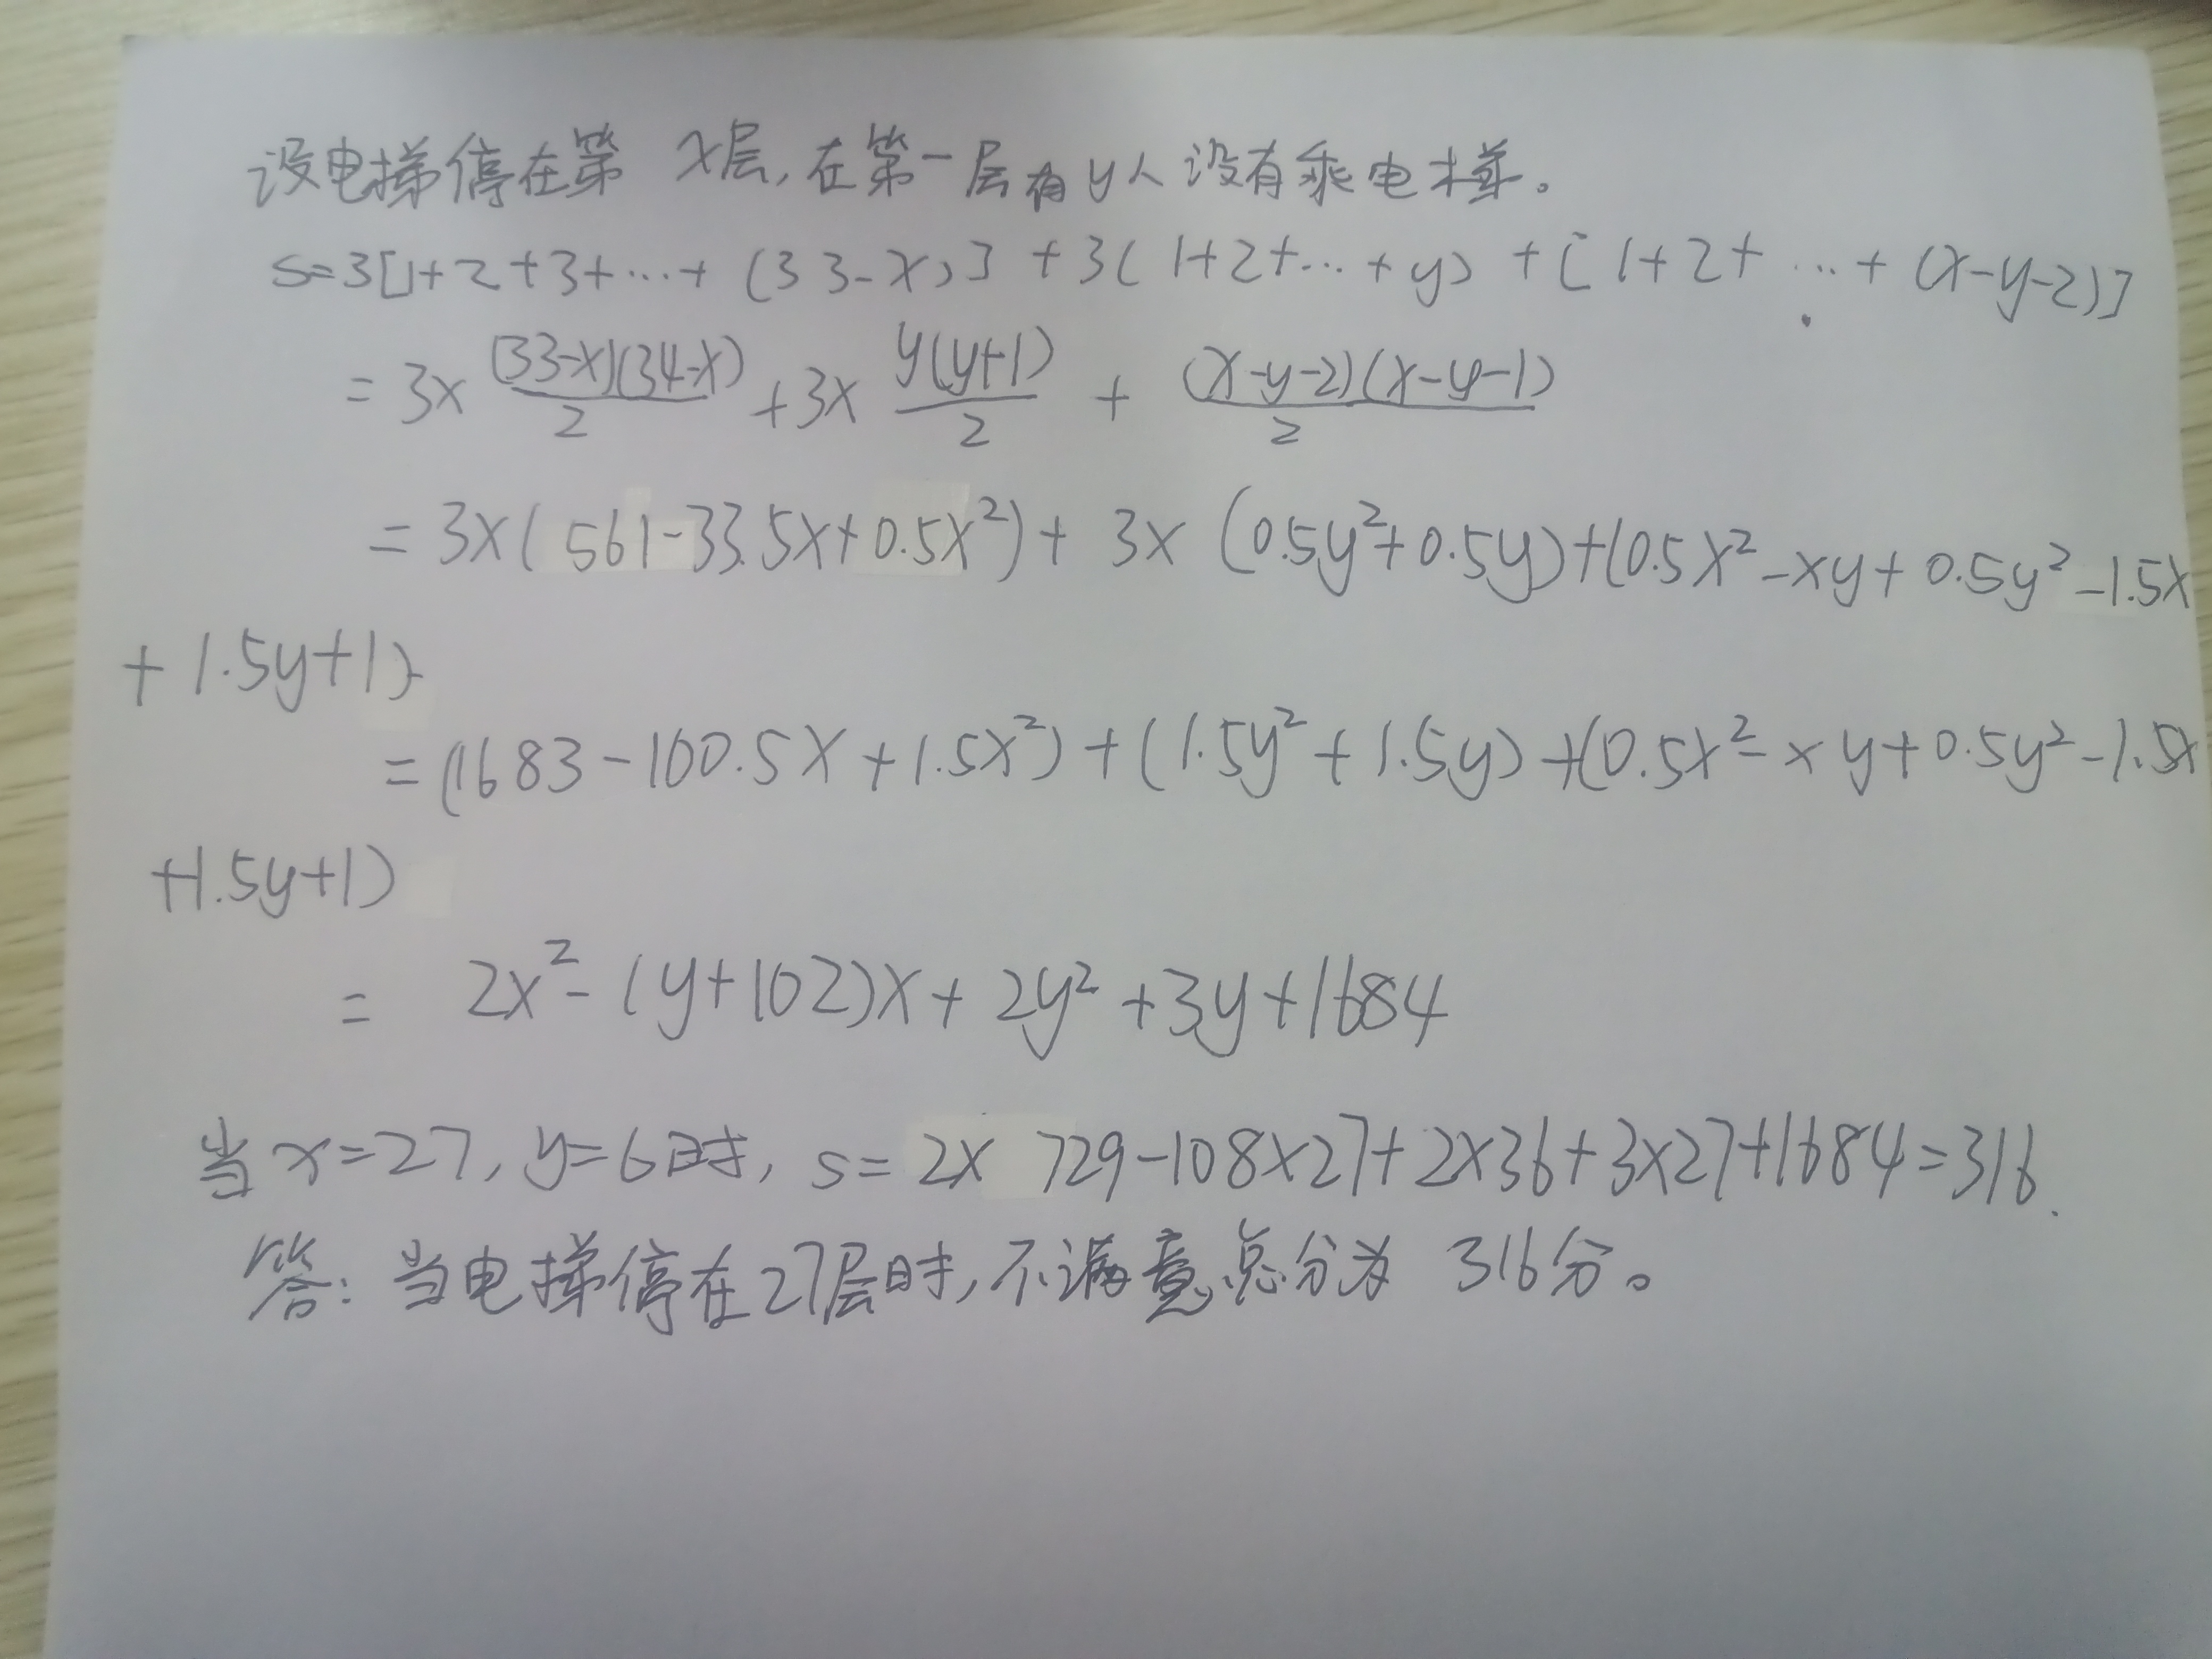 设电梯停在第 x层,在第一层有y人没有乘电梯。
S=3[1+2+3+…+(33-x)]+3(1+2+…+y)+[1+2+…+(x-y-2)]
=3×(33-x)(34-x)/2+3×y(y+1)/2+(x-y-2)(x-y-1)/2
=3×(561-33.5x+0.5x²)+3×(0.5y²+0.5y)+(0.5x²-xy+0.5y²-1.5x
+1.5y+1)
=(1683-100.5x+1.5x²)+(1.5y²+1.5y)+(0.5x²-xy+0.5y²-1.5x
+1.5y+1)
= 2x²-(y+102)x+2y²+3y+1684
当x=27,y=6时,s=2×729-108×27+2×36+3×27+1684=316.
答:当电梯停在27层时,不满意总分为 316分。